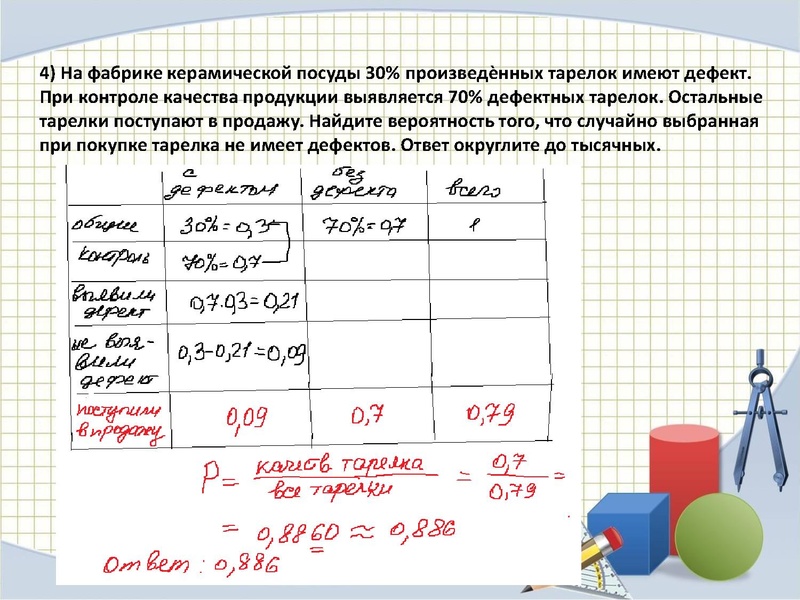 4) На фабрике керамической посуды 30% произведѐнных тарелок имеют дефект.
При контроле качества продукции выявляется 70% дефектных тарелок. Остальные
тарелки поступают в продажу. Найдите вероятность того, что случайно выбранная
при покупке тарелка не имеет дефектов. Ответ округлите до тысячных.
с дефектом без дефекта всего
общие 30%=0,3 70%=0,7 1
контроль 70%=0,7
выявили дефект 0,7·0,3=0,21
не выя-
вили
дефект 0,3-0,21=0,09
поступили в продажу 0,09 0,7 0,79
P= качеств тарелка / все тарелки = 0,7 / 0,79 =
= 0,8860 ≈ 0,886
Ответ: 0,886